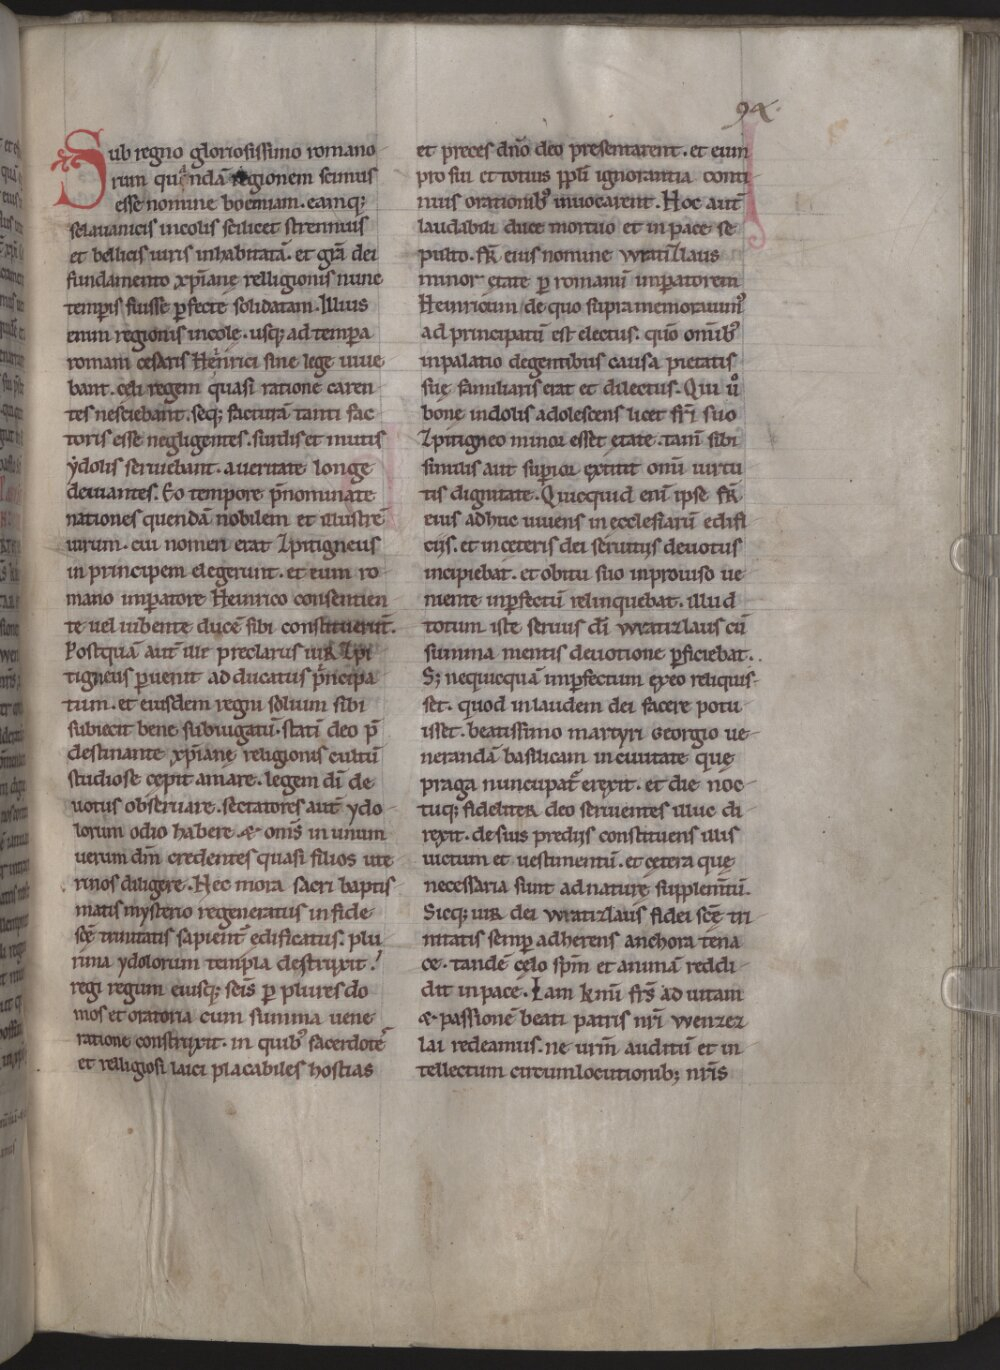 94.
Sub regno gloriosissimo romano
rum quandā regionem scimus
esse nomine boemiam. eamq;
sclauanicis incolis scilicet strennuis
et bellicis uiris inhabitatā. et grā dei
fundamento xp̄iane relligionis nunc
temp̄is fuisse p̄fecte solidatam. Illius
enim regionis incole. usq; ad temp̄a
romani cesaris Heinrici sine lege uiue
bant. celi regem quasi ratione caren
tes nesciebant. seq; facturā tanti fac
toris esse negligentes. surdis et mutis
ydolis seruiebant. a ueritate longe
deuiantes. Eo tempore p̄nominate
nationes quendā nobilem et illustrē
uirum. cui nomen erat Zpitigneus
in principem elegerunt. et eum ro
mano imp̄atore Heinrico consentien
te uel iubente ducē sibi constituerūt.
Postquā aut̄ ille preclarus uir Zpi
tigneus p̄uenit ad ducatus p̄ncipa
tum. et eiusdem regni solium sibi
subiecit bene subiugatū. statī deo p̄
destinante xp̄ianę religionis cultū
studiose cepit amare. legem dī de
uotus obseruare. sectatores aut̄ ydo
lorum odio habere & om̄s in unum
uerum dm̄ credentes quasi filios ute
rinos diligere. Nec mora sacri baptis
matis mysterio regeneratus in fide
scē trinitatis sapient̄ edificatus. plu
rima ydolorum templa destruxit.
regi regum eiusq; sc̄is p̄ plures do
mos et oratoria cum summa uene
ratione construxit. in quib᷒ sacerdotē
et relligiosi laici placabiles hostias
et preces dn̄o deo presentarent. et eum
pro sui et totius pp̄li ignorantia conti
nuis orationib᷒ inuocarent. Hoc aut̄
laudabili duce mortuo et in pace se
pulto. fr̄ eius nomine wratizlaus
minor ętate p̄ romanū imp̄atorem
Heinricum de quo supra memorauim᷒
ad principatū est electus. quō omīb᷒
in palatio degentibus causa pietatis
suę familiaris erat et dilectus. Qui ů
bone indolis adolescens licet fr̄i suo
Zpitigneo minor esset etate. tam̄ sibi
similis aut sup̄ior extitit omī uirtu
tis dignitate. Quicquid enī ipse fr̄
eius adhuc uiuens in ecclesiarū edifi
cijs. et in ceteris dei seruitijs deuotus
incipiebat. et obitu suo inprouiso ue
niente inp̄fectū relinquebat. illud
totum iste seruus dī wratizlaus cū
summa mentis deuotione p̄ficiebat.
S; nequicquā imp̄fectum ex eo reliquis
set. quod in laudem dei facere potu
isset. beatissimo martyri georgio ue
nerandā basilicam in ciuitate quę
praga nuncupat̄ erexit. et die noc
tuq; fideliter deo seruientes illuc di
rexit. de suis predijs constituens illis
uictum et uestimentū. et cętera quę
necessaria sunt ad naturę supplentū.
Sicq; uir dei wratizlaus fidei scē tri
nitatis semp̄ adherens anchora tena
ce. tandē cęlo sp̄m et animā reddi
dit in pace. Iam kmī frs̄ ad uitam
& passionē beati patris nr̄i wenzez
lai redeamus. ne urm̄ auditū et in
tellectum circumlocutionib; nr̄is